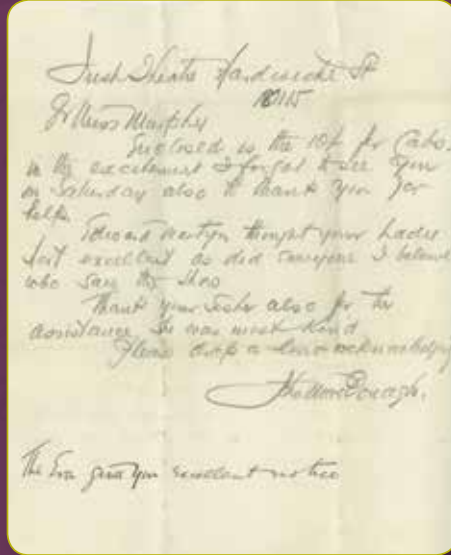 Irish Theatre Hardwicke St
Dr Miss Murphy
Enclosed is the 10/- for Cabs.
in the excitement I forgot to see you
on Saturday also to thank you for
help
Edward Martyn thought your Lady
excellent as did everyone I believe
who saw the show
Thank your sister also for the
assistance She was most kind
Please drop a line acknowledging
The Era gave you excellent notice